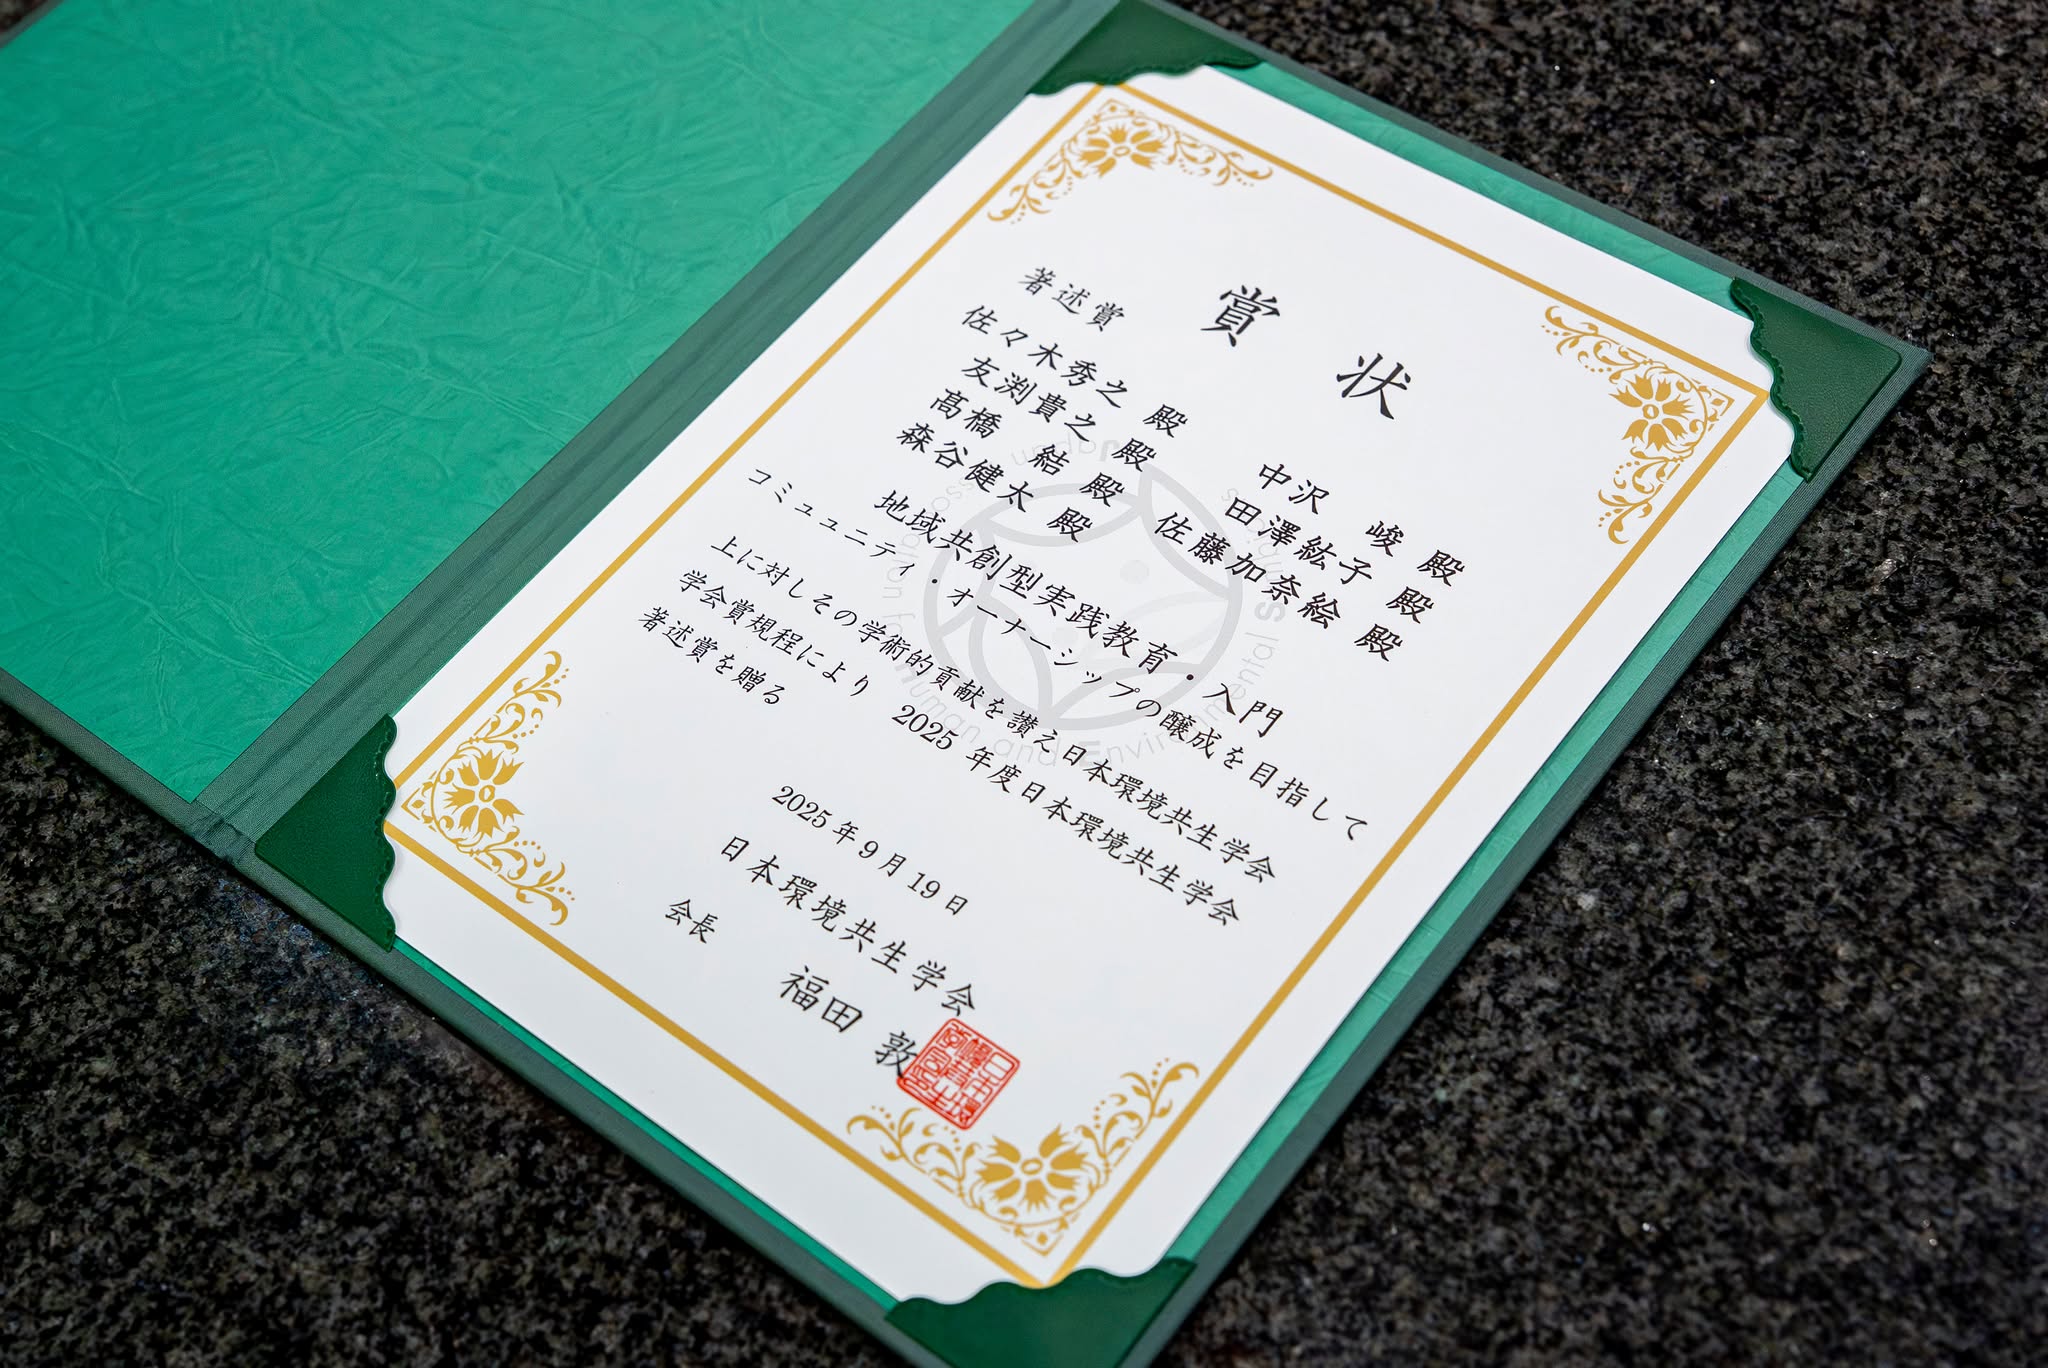 賞 状
著述賞
佐々木秀之 殿 中沢 峻 殿
友渕貴之 殿 田澤紘子 殿
髙橋 結 殿 佐藤加奈絵 殿
森谷健太 殿
地域共創型実践教育・入門
コミュニティ・オーナーシップの醸成を目指して
上に対しその学術的貢献を讃え日本環境共生学会
学会賞規程により 2025 年度日本環境共生学会
著述賞を贈る
2025 年 9 月 19 日
日本環境共生学会
会長 福田 敦